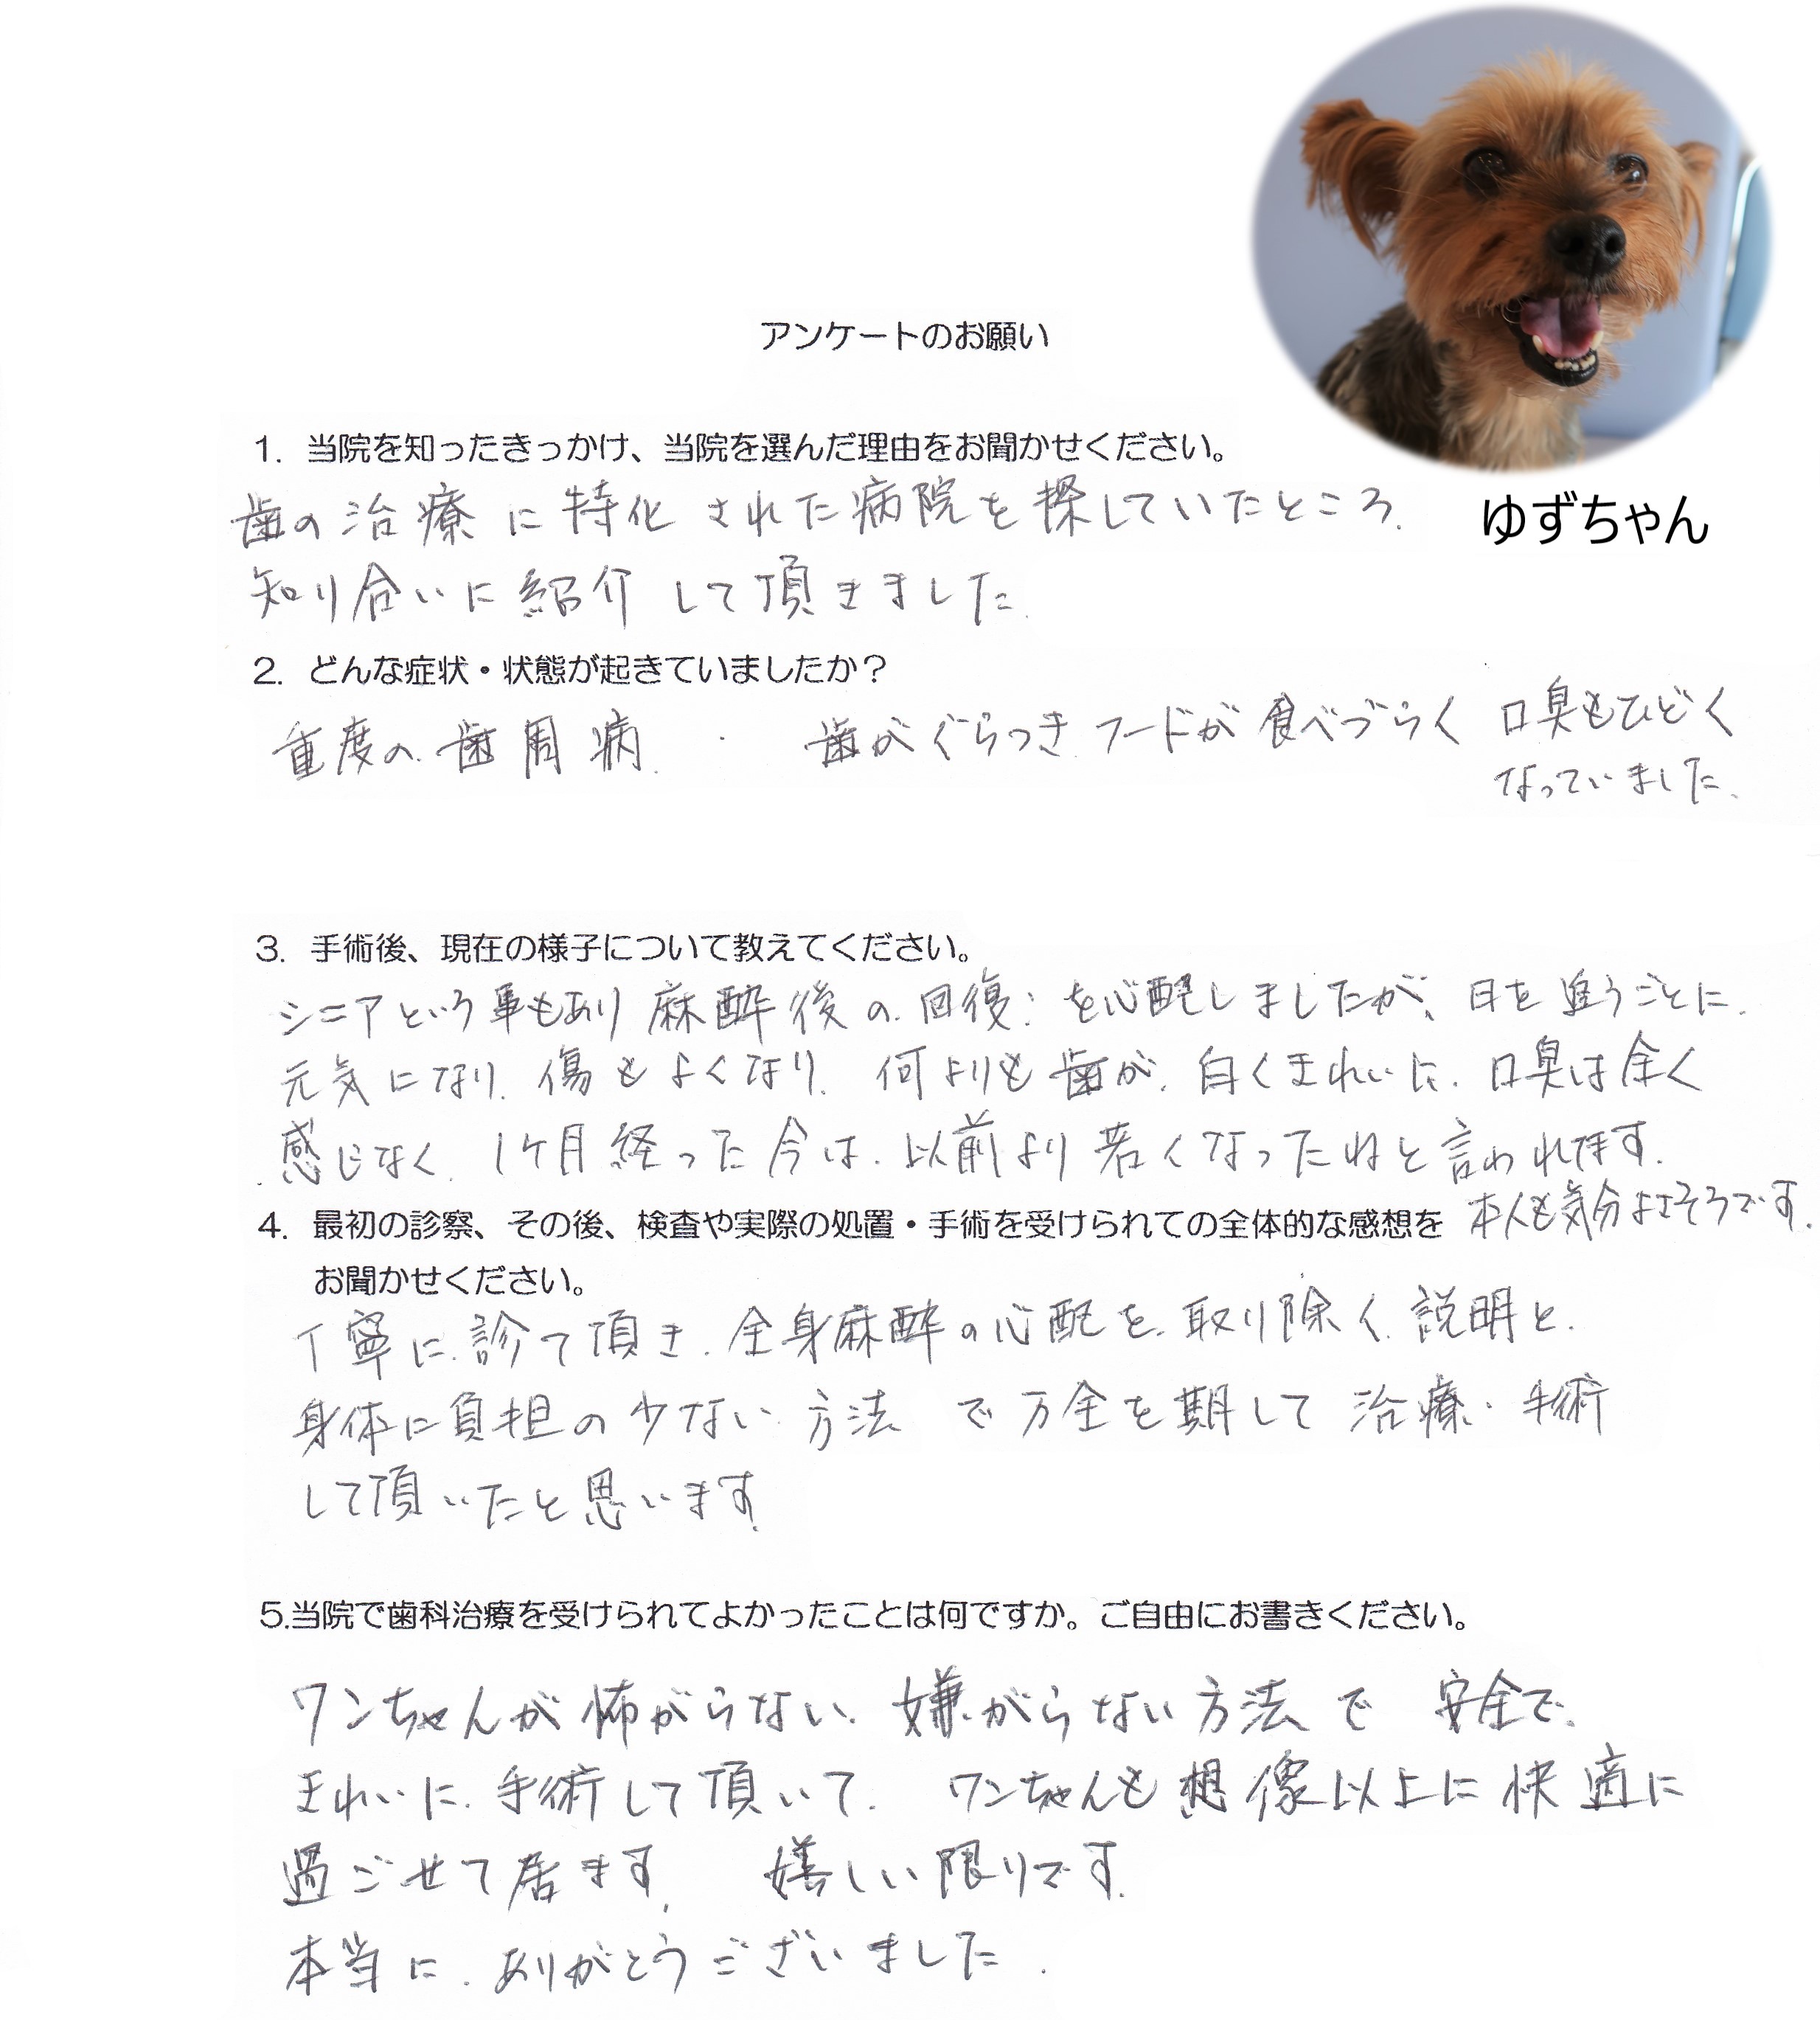 アンケートのお願い
1. 当院を知ったきっかけ、当院を選んだ理由をお聞かせください。
歯の治療に特化された病院を探していたところ、
ゆずちゃん
知り合いに紹介して頂きました。
2. どんな症状・状態が起きていましたか？
重度の歯周病、歯がぐらつきフードが食べづらく 口臭もひどく
なっていました。
3. 手術後、現在の様子について教えてください。
シニアという事もあり麻酔後の回復を心配しましたが、日を追うごとに、
元気になり、傷もよくなり、何よりも歯が、白くきれいに、口臭は全く
感じなく、1ヶ月経った今は、以前より若くなったねと言われてます。
本人も気分よさそうです。
4. 最初の診察、その後、検査や実際の処置・手術を受けられての全体的な感想を
お聞かせください。
丁寧に診て頂き、全身麻酔の心配を取り除く説明と、
身体に負担の少ない方法で万全を期して治療・手術
して頂いたと思います。
5.当院で歯科治療を受けられてよかったことは何ですか。ご自由にお書きください。
ワンちゃんが怖がらない、嫌がらない方法で 安全で、
きれいに手術して頂いて、ワンちゃんも想像以上に快適に
過ごせて居ます。嬉しい限りです。
本当に、ありがとうございました。